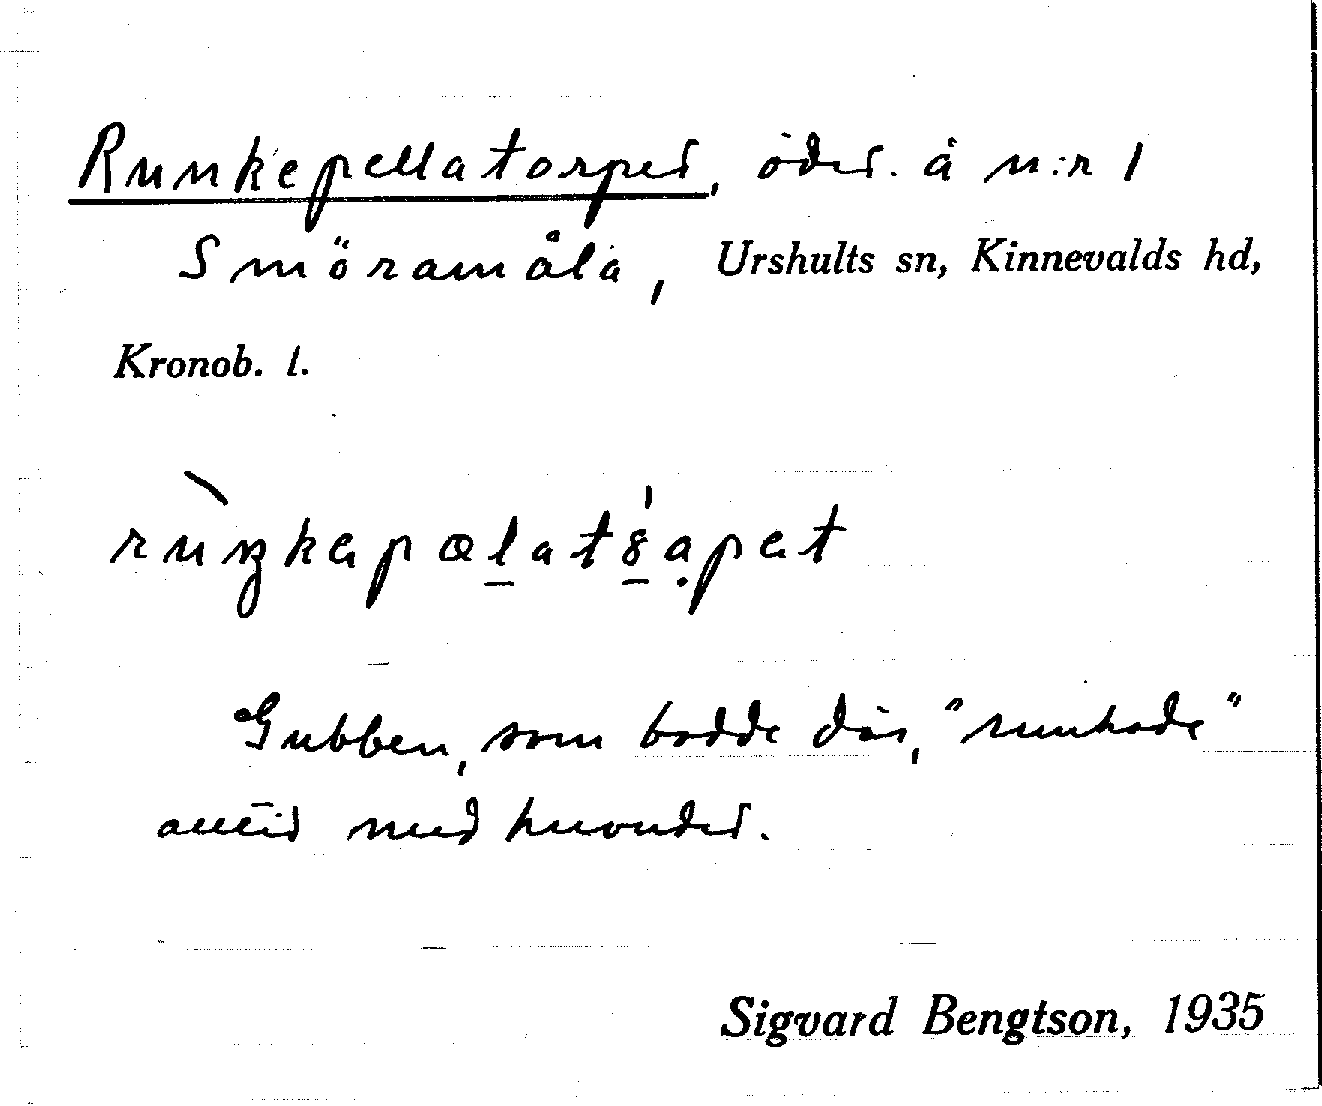 Runkepellatorpet, ödet. å n:r 1
Smöramåla, Urshults sn, Kinnevalds hd,
Kronob. l.
Gubben, som bodde där, "runkade"
alltid med huvudet.
Sigvard Bengtson, 1935